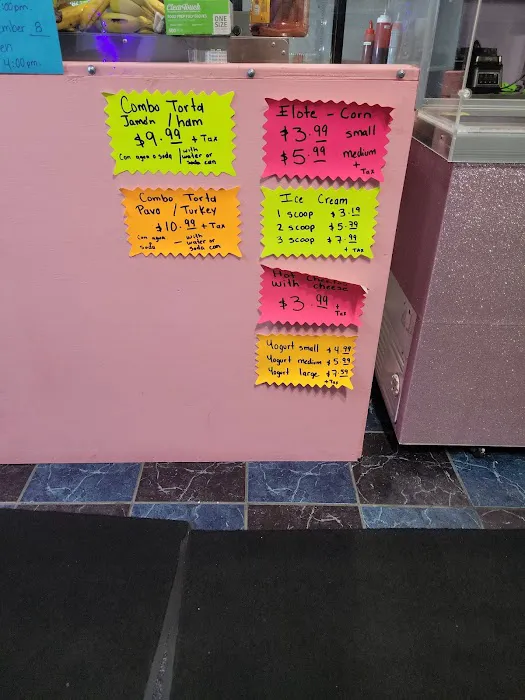 :00pm.
mber 8
4:00pm.
ClearTouch
ONE
SIZE
Combo Torta
Jamón / ham
$9.99 + Tax
Con agua o soda / with
water or
soda can
Combo Torta
Pavo / Turkey
$10.99 + Tax
Con agua
soda - with
water or
soda can
Elote - Corn
$3.99 small
$5.99 medium
+
Tax
Ice Cream
1 scoop $3.19
2 scoop $5.39
3 scoop $7.99
+ Tax
Hot Cheetos
with cheese
$3.99 +
Tax
Yogurt small $4.99
Yogurt medium $5.99
Yogurt large $7.59
+ Tax